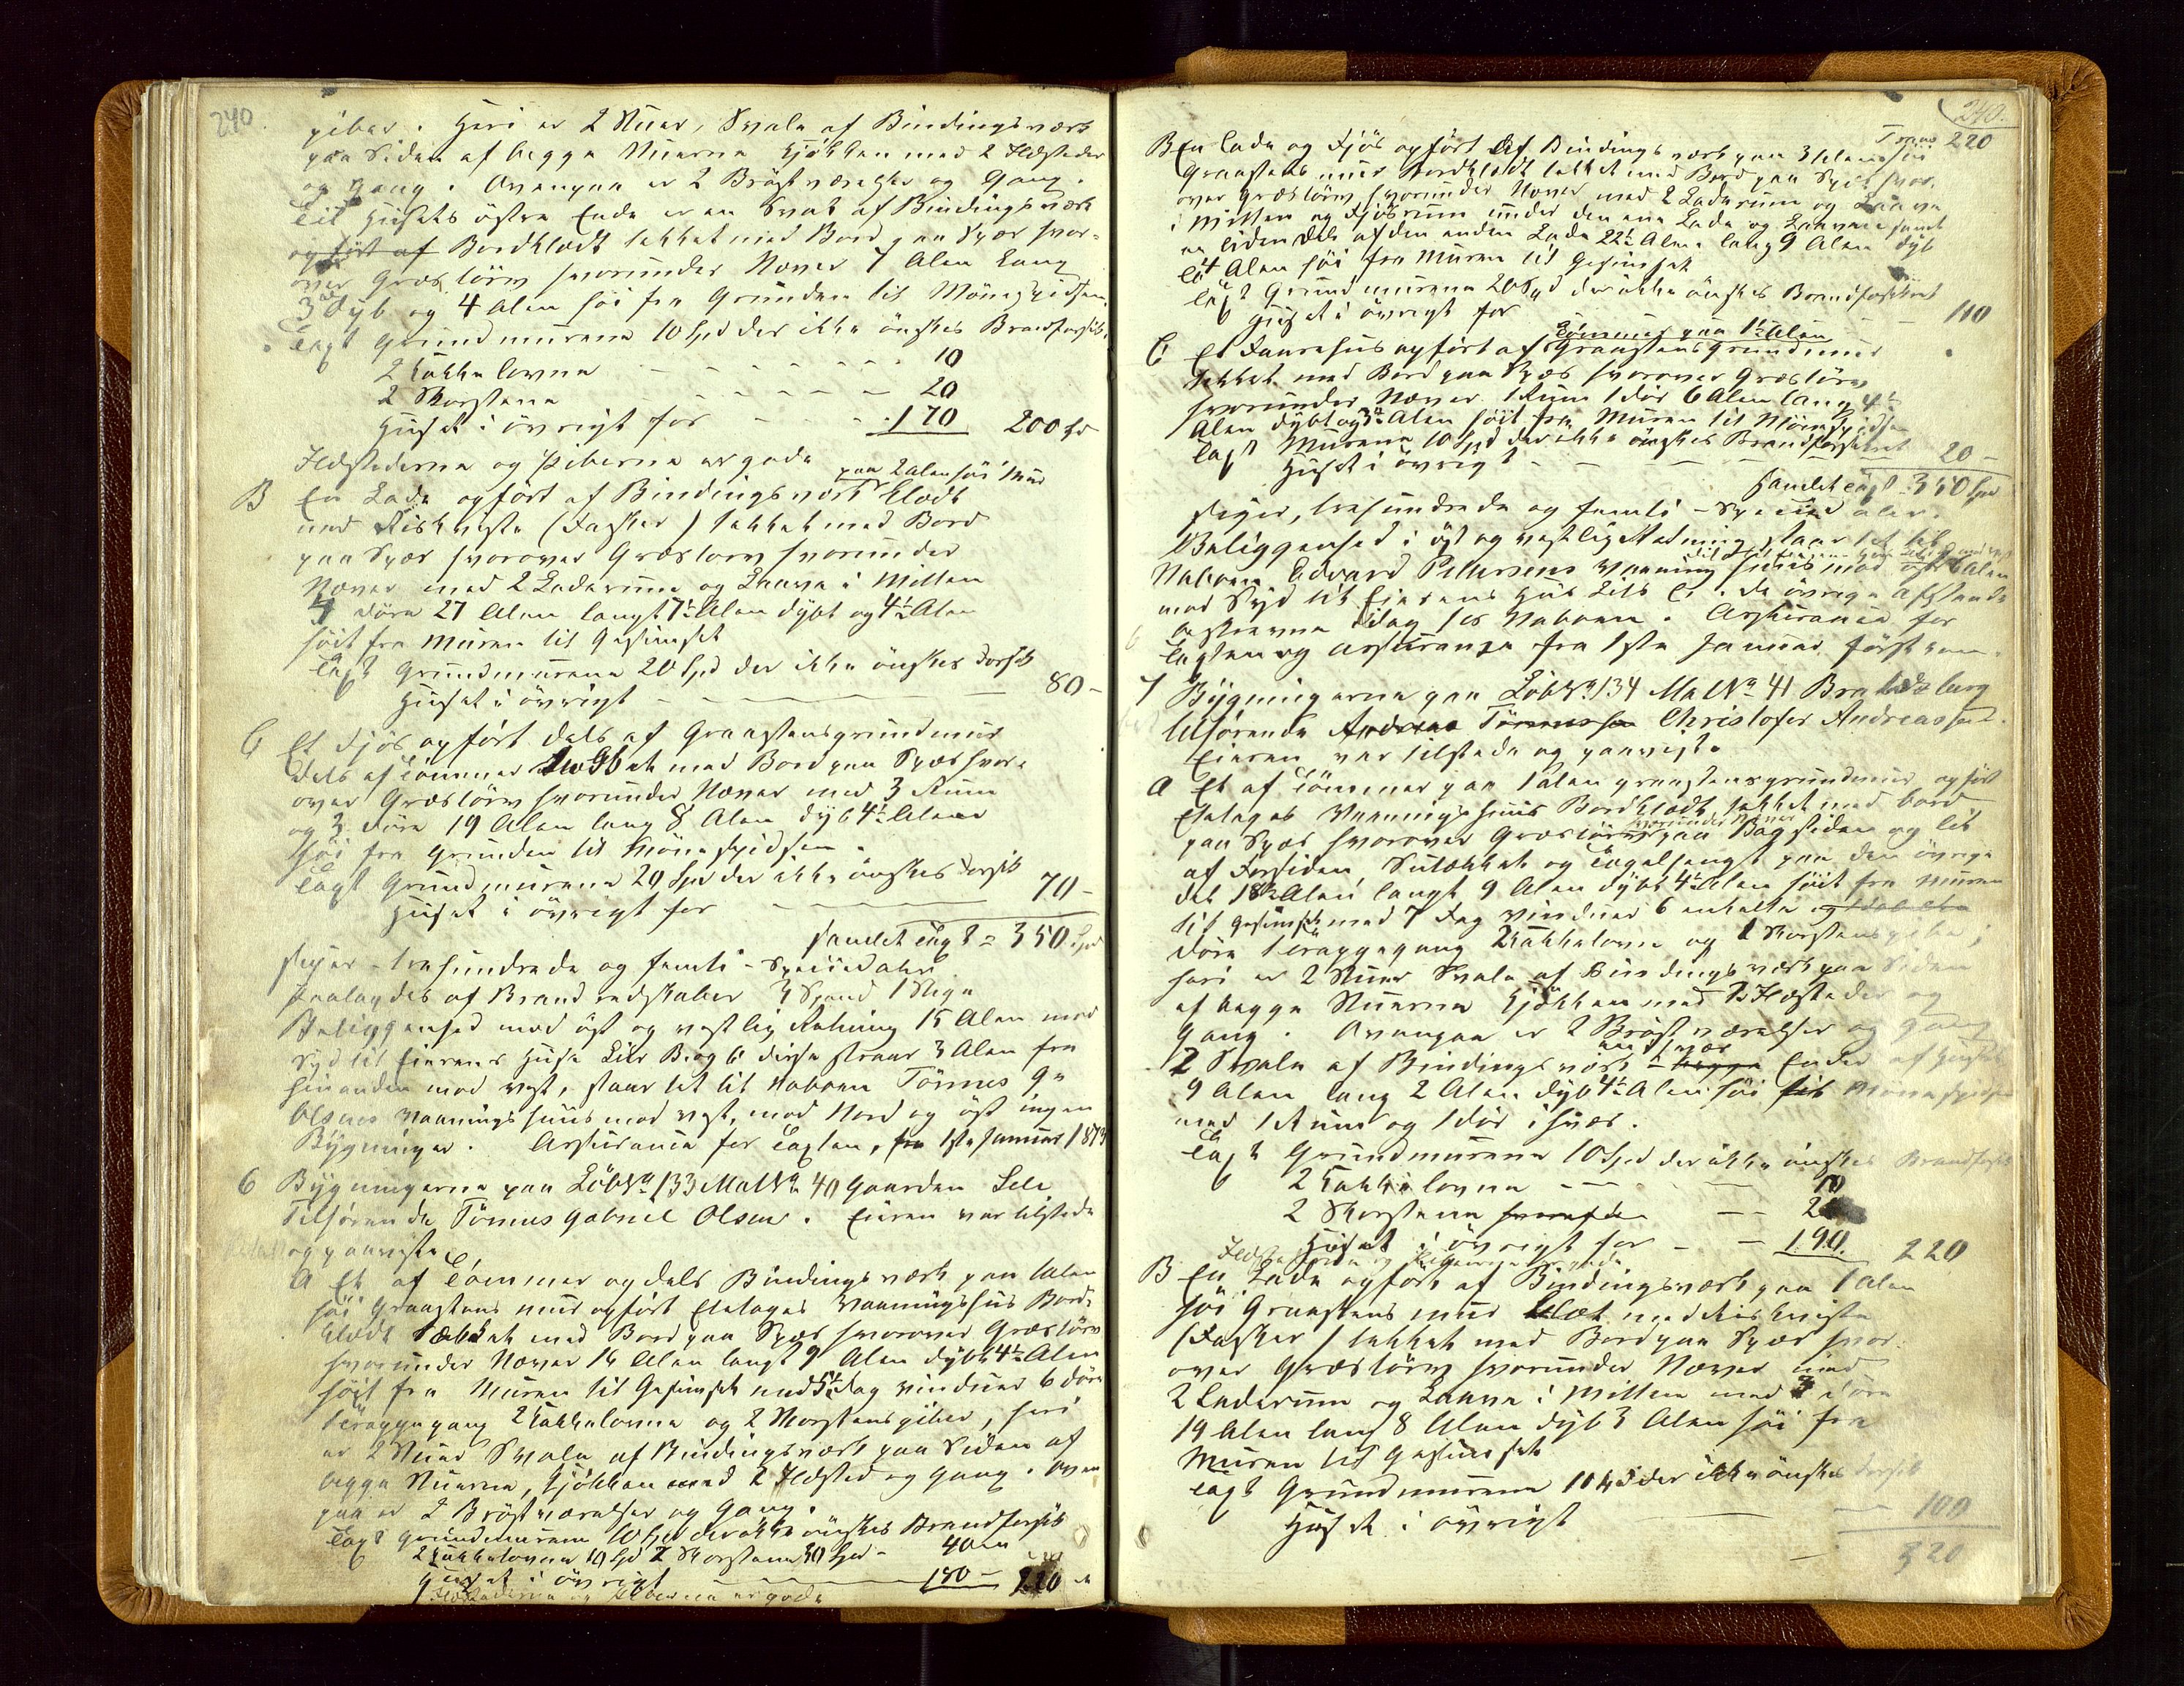 240
piber. Heri er 2 Stuer, Svale af Bindingsværk
paa Siden af begge Stuerne Kjøkken med 2 Ildsteder
og Gang. Ovenpaa er 2 Bröstværelser og Gang.
Til Husets östre Ende er en Sval af Bindingsværk
opfört af Bordklædt tækket med Bord paa Spær hvor-
over Græstörv hvorunder Næver 7 Alen lang
3 dyb og 4 Alen höi fra Grunden til Mönespidsen
Taxt Grundmurene 10 Spd der ikke önskes Brandforsik.
2 Kakkelovne 10
2 Skorstene 20
Huset i övrigt for 170 200 Sp
Ildstederne og Piberne er gode
paa 2 Alen höi Mur
B En Lade opfört af Bindingsværk klædt
med Riskviste (Fasker) tækket med Bord
paa Spær hvorover Græstorv hvorunder
Næver med 2 Laderum og Laave i Midten
4 Döre 27 Alen langt 7½ Alen dybt og 4½ Alen
höit fra Muren til Gesimset
Taxt Grundmurene 20 Spd der ikke önskes Forsik
Huset i övrigt 80 -
C Et Fjös opfört dels af Graastensgrundmur
dels af Tömmer tækket med Bord paa Spær hvor-
over Græstörv hvorunder Næver med 3 Rum
og 3 Döre 19 Alen lang 8 Alen dyb 4½ Alen
höi fra Grunden til Mönespidsen.
Taxt Grundmurene 20 Spd der ikke önskes Forsik
Huset i övrigt for 70 -
samlet Taxt = 350 Spd
siger - trehundrede og femti - Speciedaler
Paalagdes af Brandredskaber 3 Spand 1 Stige
Beliggenhed med öst og vestlig Retning 15 Alen mod
Syd til Eierens Huse Litr B. og C disse staar 3 Alen fra
hinanden mod vest, staar tæt til Naboen Tönnes G.
Olsens Vaaningshuus mod vest, mod Nord og öst ingen
Bygninger. Assurance for Taxten, fra 1ste Januar 1873
6 Bygningerne paa Löb No 133 Mat No 40 Gaarden Sele
Tilhörende Tönnes Gabriel Olsen. Eieren var tilstede
og paaviste
A Et af Tömmer og dels Bindingsværk paa 1 Alen
höi Graastens mur opfört Etetages Vaaningshus Bord-
klædt tækket med Bord paa Spær hvorover Græstörv
hvorunder Næver 16 Alen langt 9 Alen dybt 4½ Alen
höit fra Muren til Gesimset med 5 Fag Vinduer 6 Döre
1 Trappegang 2 Kakkelovne og 2 Skorstenspiber, heri
er 2 Stuer Svale af Bindingsværk paa Siden af
begge Stuerne, Kjökken med 2 Ildsted og Gang. Oven
paa er 2 Bröstværelser og Gang.
Taxt Grundmurene 10 Spd der ikke önskes Brandforsik
2 Kakkelovne 10 Spd 2 Skorstene 30 Spd - 40
Huset i övrigt 180 - 220
Ildstederne og Piberne er gode
240.
Trans 220
B En Lade og Fjös opfört af Bindingsværk paa 3 Alen höi
Graastens mur Bordklædt tækket med Bord paa Spær hvor-
over Græstörv hvorunder Næver med 2 Laderum og Laave
i Midten og Fjösrum under den ene Lade og Laaven samt
en liden Del af den anden Lade 22½ Alen lang 9 Alen dyb
4 Alen höi fra Muren til Gesimset
Taxt Grundmurene 20 Spd der ikke önskes Brandforsikret
Huset i övrigt for 110
Tömmer paa 1½ Alen
C Et Faarehus opfört af Graastens Grundmur
tækket med Bord paa Spær hvorover Græstörv
hvorunder Næver 1 Rum 1 Dör 6 Alen lang 4½
Alen dybt og 3½ Alen höit fra Muren til Mönespidsen
Taxt Murene 10 Spd der ikke önskes Brandforsikret
Huset i övrigt 20 -
samlet Taxt 350 Spd
siger, trehundrede og femti - Speciedaler.
Beliggenhed i öst og vestlig Retning staar tæt til
Naboen Edvard Pedersens Vaaning huus mod Alen
mod Syd til Eierens Hus Litr C. De övrige Afstande
beskrevne idag hos Naboen. Assurance for
Taxten og Assurance fra 1ste Januar förstkom.
7 Bygningerne paa Löb No 134 Mat No 41 Brattebjerg
tilhörende Andreas Tönnessen Christofer Andreassen.
Eieren var tilstede og paaviste
A Et af Tömmer paa 1 Alen graastensgrundmur opfört
Etetages Vaaningshuus Bordklædt tækket med bord
hvorunder Næver
paa Spær hvorover Græstörv paa Bagsiden og lit
af Forsiden, Sutækket og Tagelhængt paa den övrige
del 18½ Alen langt 9 Alen dybt 4½ Alen höit fra Muren
til Gesimset med 7 Fag Vinduer 6 enkelte og 1 dobbelte
Döre 1 Trappegang 2 Kakkelovne og 2 Skorstenspiber;
heri er 2 Stuer Svale af Bindingsværk paa Siden
af begge Stuerne Kjökken med 2 Ildsteder og
Gang. Ovenpaa er 2 Bröstværelser og Gang
2 Svale af Bindingsværk i begge Ender af Huset
9 Alen lang 2 Alen dyb 4½ Alen höi til Mönespidsen
med 1 Rum og 1 Dör i hver.
Taxt Grundmurene 10 Spd der ikke önskes Brandforsik
2 Kakkelovne 10
2 Skorstene 20
Huset i övrigt for 190. 220
B En Lade opfört af Bindingsværk paa 1 Alen
höi Graastens mur klæt med Riskviste
(Fasker) tækket med Bord paa Spær hvor
over Græstörv hvorunder Næver med
2 Laderum og Laave i Midten med 3 Döre
19 Alen lang 8 Alen dyb 3 Alen höi fra
Muren til Gesimset
Taxt Grundmurene 10 Spd der ikke önskes Forsik
Huset i övrigt 100
320